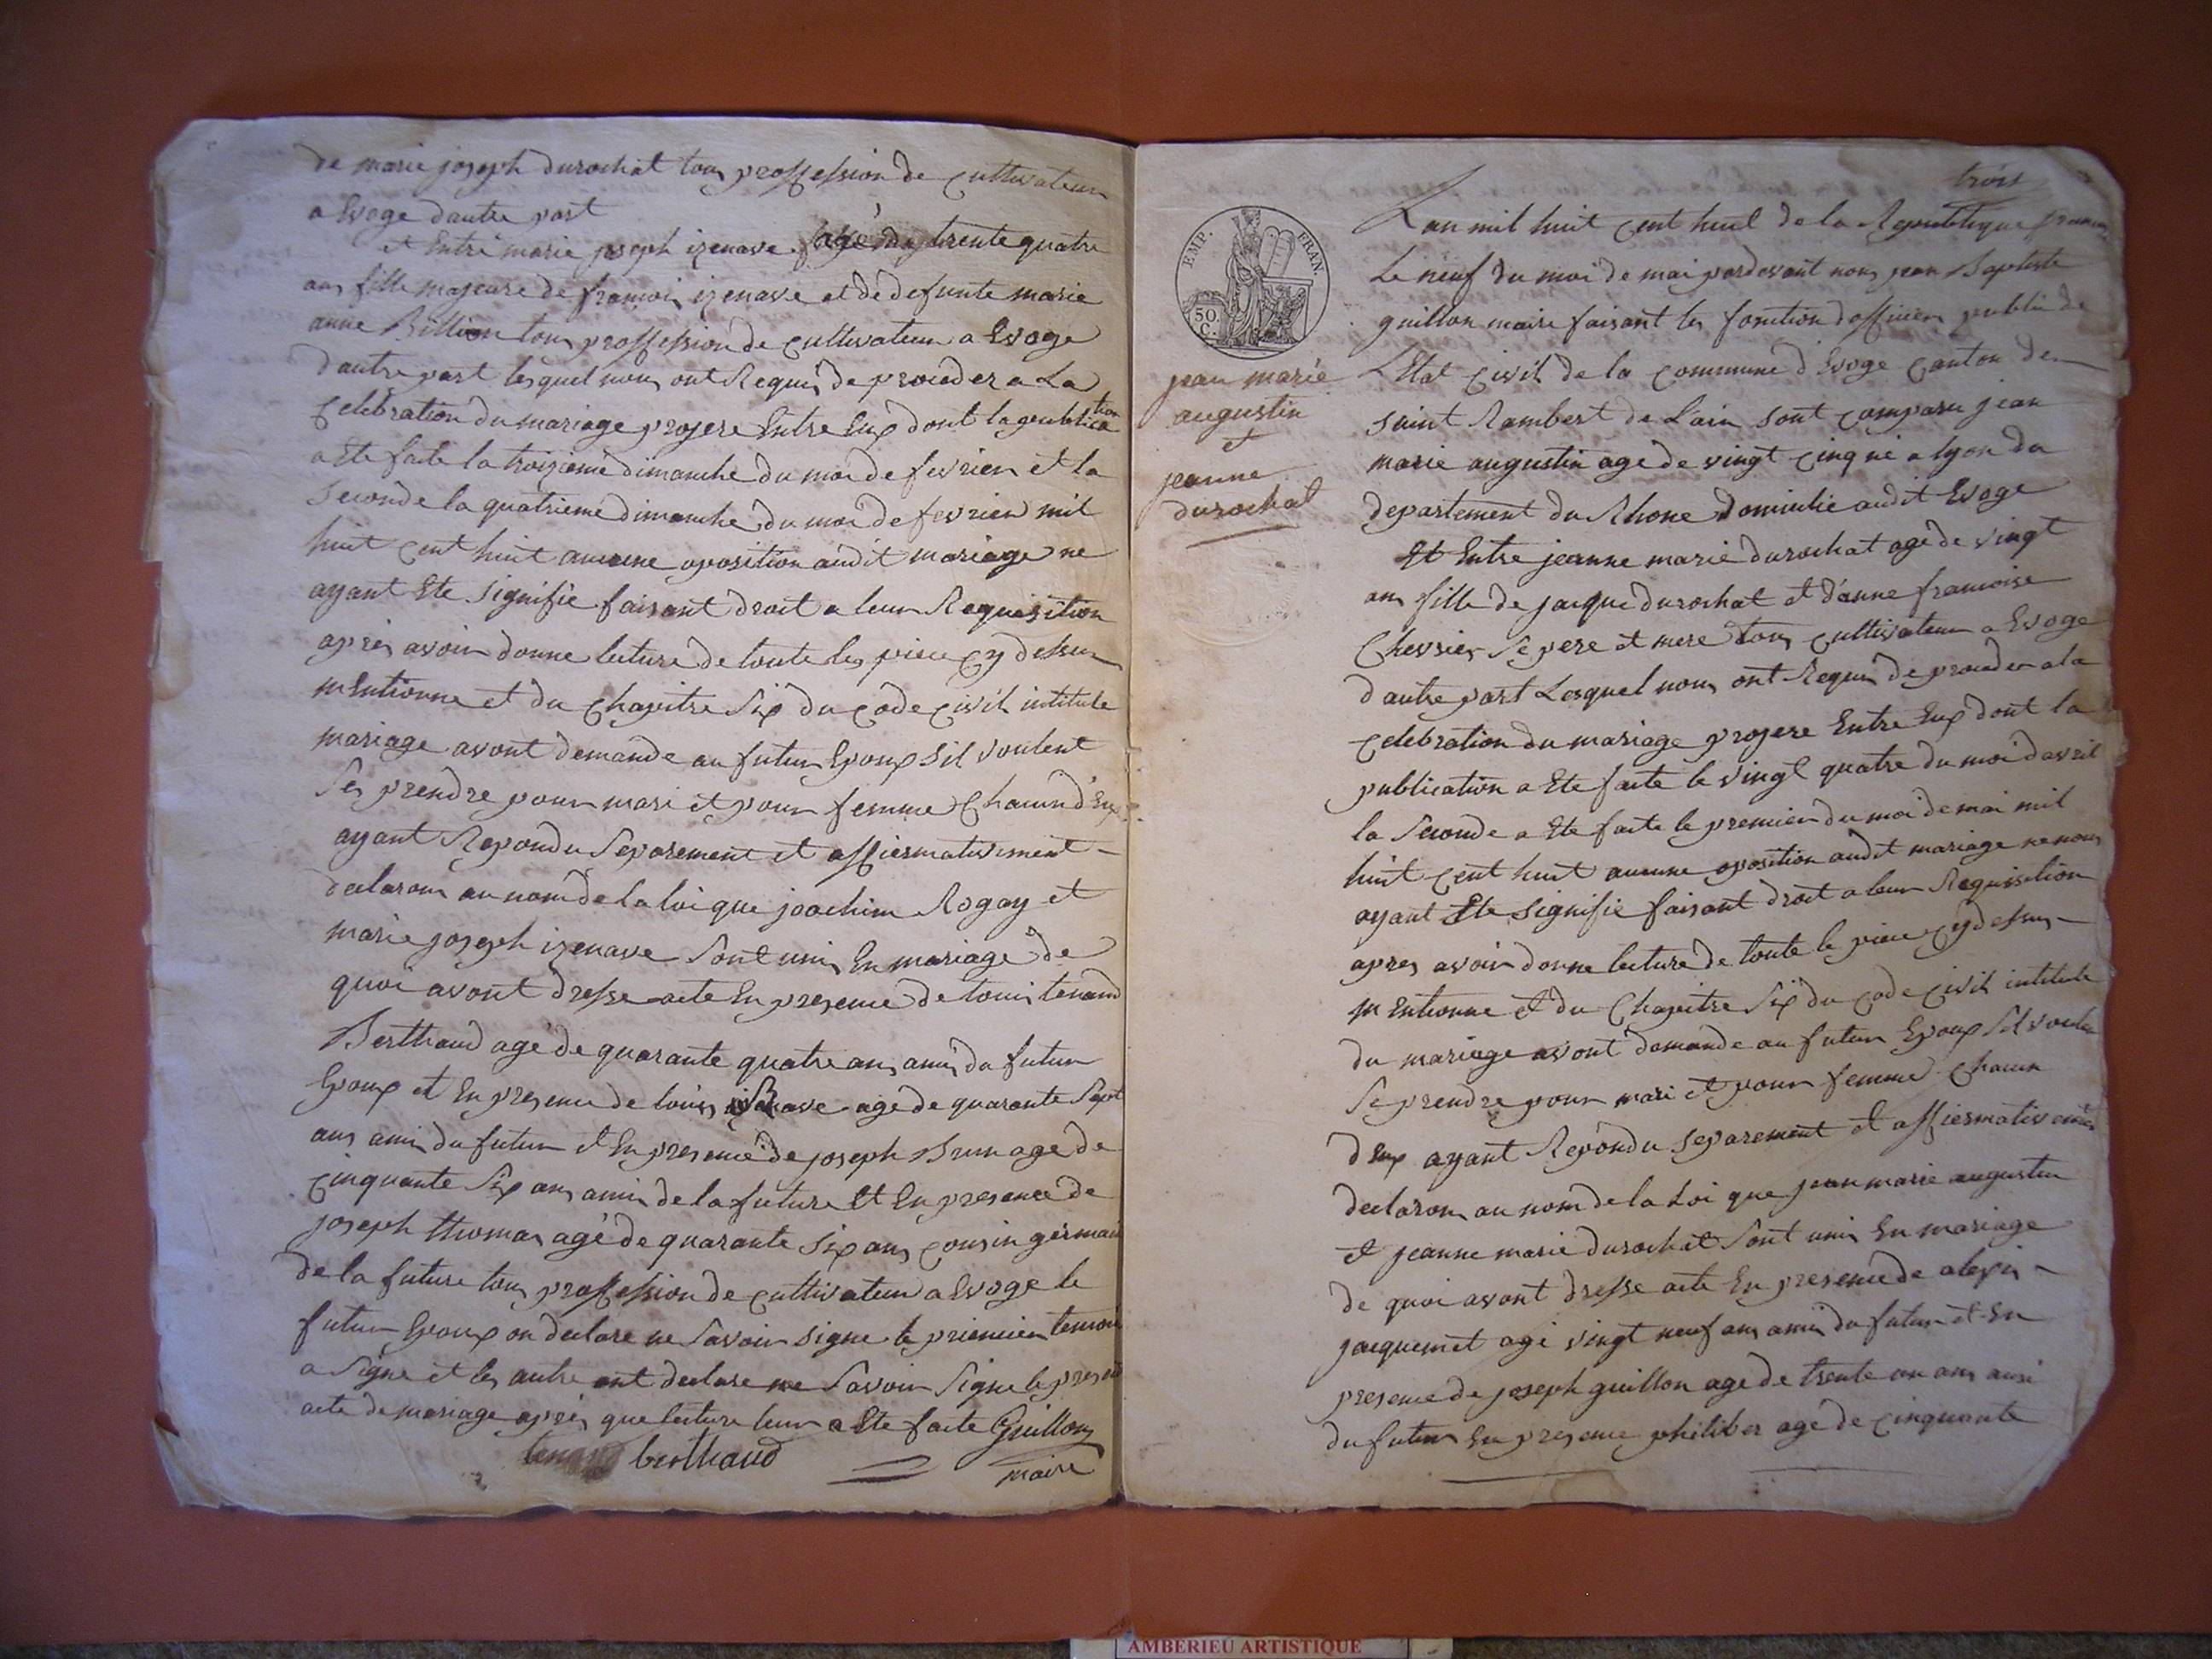 de marie joseph durochat tous proffession de cultivateur
a Evoge dautre part
et Entre marie joseph izenave agé de trente quatre
ans fille majeure de francois izenave et de defunte marie
anne Billion tous proffession de cultivateur a Evoge
dautre part lesquel nous ont Requis de proceder a La
Celebration du mariage projere Entre Eux dont la publication
a Ete faite la troizieme dimanche du moi de fevrier et la
Seconde la quatrieme dimanche du moi de fevrier mil
huit cent huit aucune oposition audit mariage ne
ayant Ete Signifié faisant droit a leur Requisition
apres avoir donne lecture de toute les piece cy dessus
mentionne et du Chapitre Six du Code Civil intitule
mariage avont demande au futur Epoux Sil voulent
Ses prendre pour mari et pour femme Chacun d'Eux
ayant Repondu Separement et affiermativement
declarons au nom de la loi que joachim Rogay et
marie joseph izenave Sont unis En mariage de
quoi avont dresse acte En presence de louis tenand
Berthaud agé de quarante quatre ans amis du futur
Epoux et En presence de louis izenave age de quarante Sept
ans amis du futur et En presence de joseph Brun age de
Cinquante Six ans amis de la future Et En presence de
joseph thomas agé de quarante Six ans cousin germain
de la future tous proffession de cultivateur a Evoge le
futur Epoux on declare ne Savoir signe le priemier temoin
a Signe et les autre ont declare ne Savoir Signe le present
acte de mariage apres que lecture leur a Ete faite Guillon
tenand berthaud maire
trois
EMP. FRAN.
50 C.
jean marie
augustin
et
jeanne
durochat
Lan mil huit cent huit de la Republique francaise
Le neuf du moi de mai pardevant nous jean Baptiste
guillon maire faisant les fonction dofficier public de
L'Etat Civil de la Commune d'Evoge Canton de
saint Rambert de L'ain sont comparu jean
marie augustin age de vingt cinq né a lyon du
departement du Rhone domicilie audit Evoge
Et Entre jeanne marie durochat age de vingt
ans fille de jacque durochat et d'anne francoise
Chevrier Se pere et mere tous cultivateur a Evoge
d'autre part Lesquel nous ont Requis de proceder a la
Celebration du mariage projere Entre Eux dont la
publication a Ete faite le vingt quatre du moi davril
la Seconde a Ete faite le premier du moi de mai mil
huit cent huit aucune oposition audit mariage ne nous
ayant Ete Signifie faisant droit a leur Requisition
apres avoir donne lecture de toute le piece cy dessus
mentionne et du Chapitre Six du Code Civil intitule
du mariage avont demande au futur Epoux Sil voulent
Se prendre pour mari et pour femme Chacun
d'Eux ayant Repondu Separement et affiermativement
declarons au nom de la Loi que jean marie augustin
et jeanne marie durochat Sont unis En mariage
de quoi avont dresse acte En presence de alexis
jacquemet agé vingt neuf ans amis du futur et En
presence de joseph guillon age de trente un ans ausi
du futur En presence philiber age de cinquante
AMBERIEU ARTISTIQUE